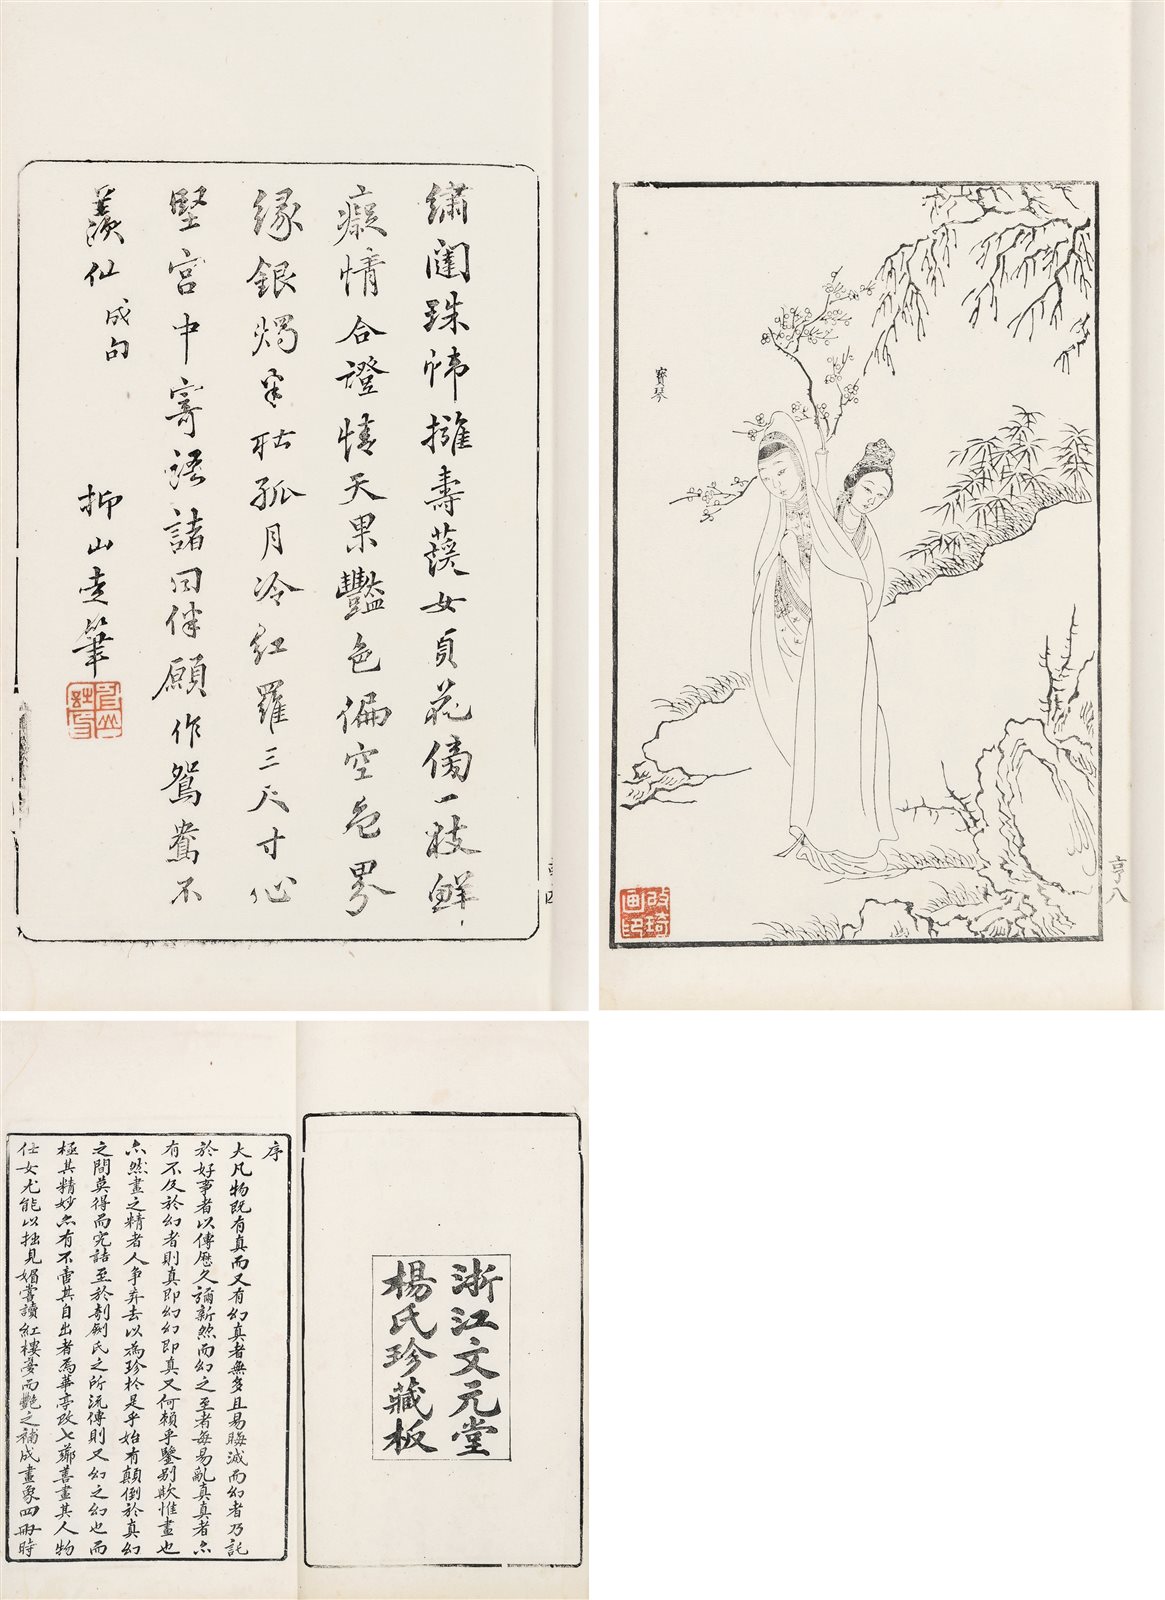 繡闈珠幃擁壽蘐女貞花傍一枝鮮
癡情合證情天果豔色偏空色界
緣銀燭宵孤月冷紅羅三尺寸心
堅宮中寄語諸同伴願作鴛鴦不
羨仙 成句
抑山走筆
寶琴
改琦
画印
亨八
浙江文元堂
楊氏珍藏板
序
大凡物既有真而又有幻真者無多且易晦滅而幻者乃託
於好事者以傳歷久彌新然而幻之至者每易亂真真者亦
有不及於幻者則真即幻幻即真又何賴乎鑒別歟惟畫也
亦然畫之精者人爭弆去以為珍於是乎始有顛倒於真幻
之間莫得而究詰至於剞劂氏之所流傳則又幻之幻也而
極其精妙亦有不啻其自出者焉華亭改七薌善畫其人物
仕女尤能以拙見媚嘗讀紅樓夢而艷之補成畫象四冊時